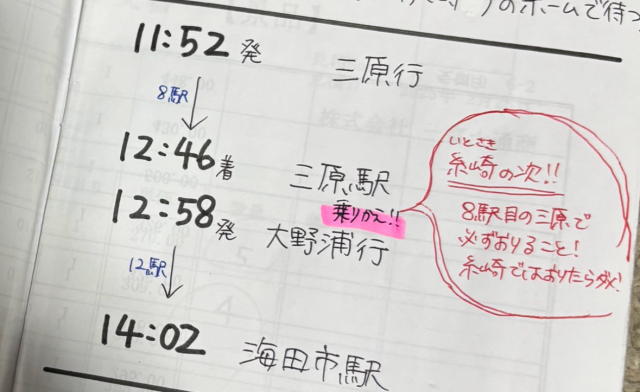 のホームで待つ
11:52発 三原行
8駅
12:46着 三原駅
乗りかえ!!
12:58発 大野浦行
12駅
14:02 海田市駅
いとさき
糸崎の次!!
8駅目の三原で
必ずおりること!
糸崎ではおりたらダメ!